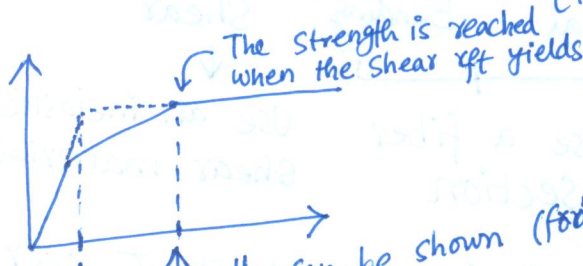 The strength is reached
when the shear rft yields
can be shown (for